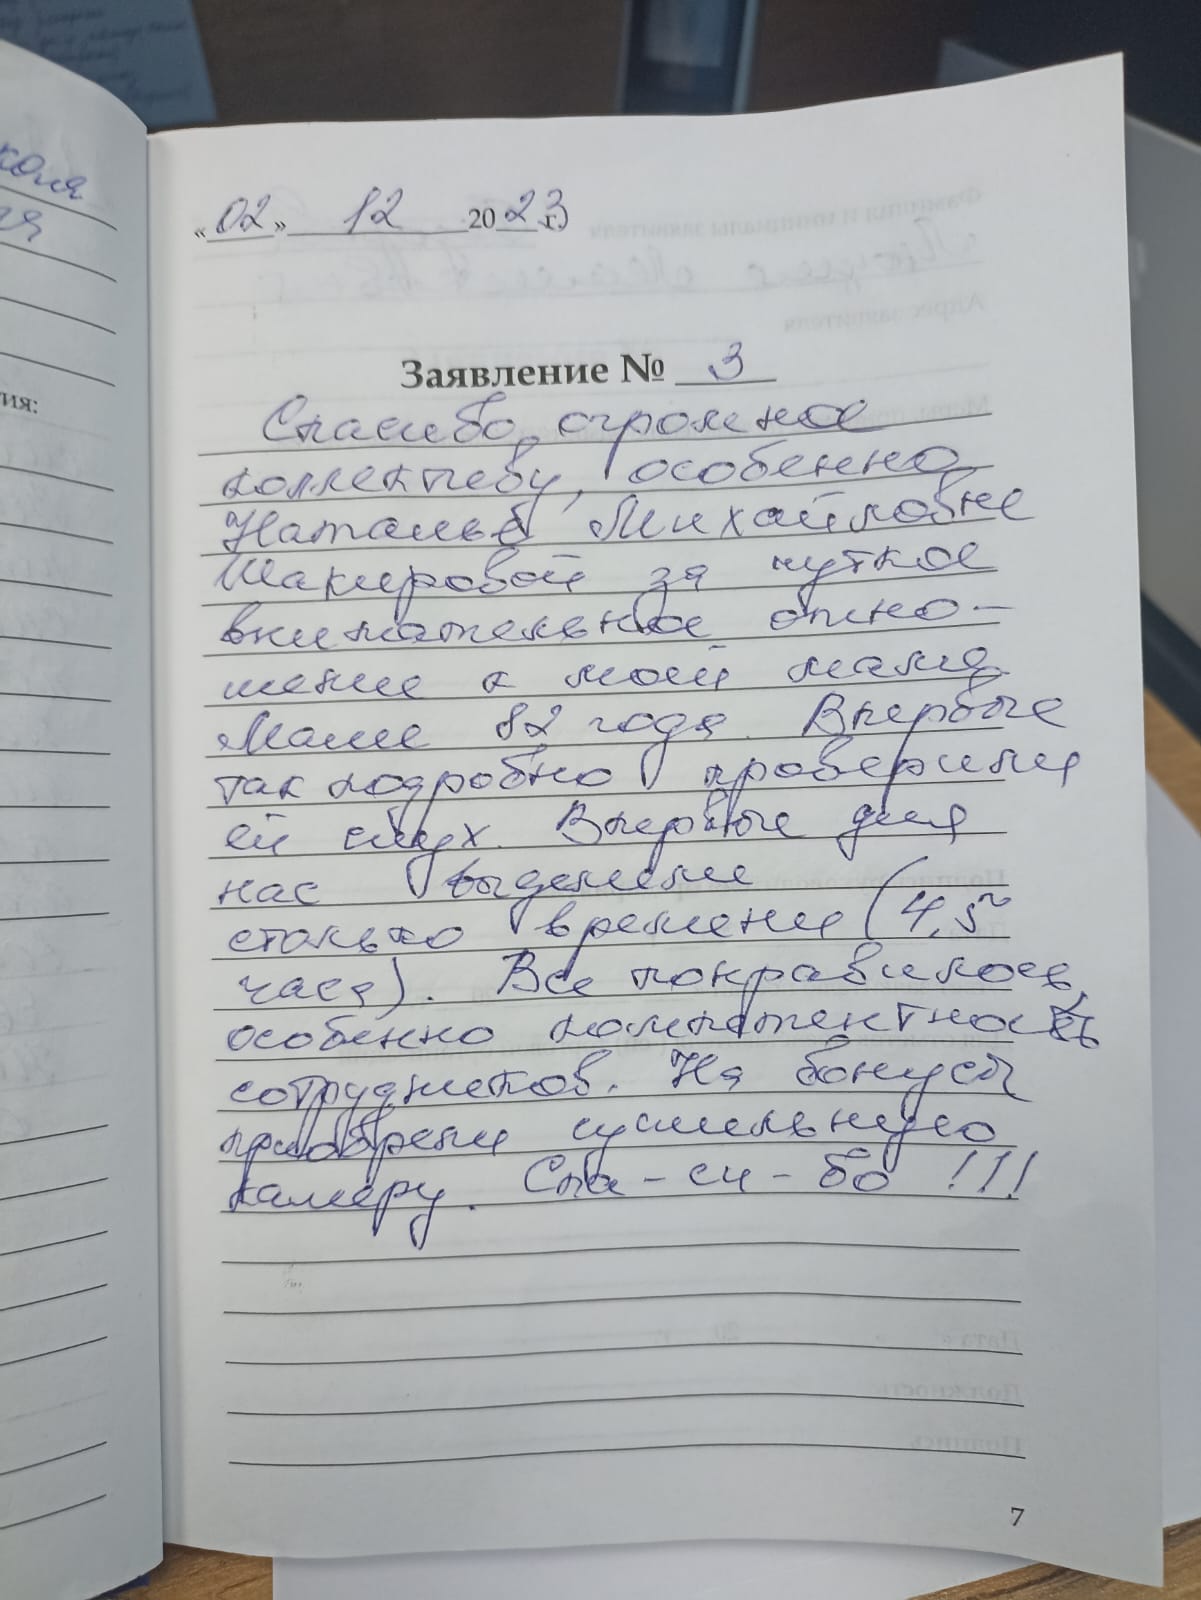 «02» 12 2023 г.
Заявление № 3
Спасибо огромное
коллективу, особенно
Наталье Михайловне
Шакировой за чуткое
внимательное отно-
шение к моей маме.
Маме 82 года. Впервые
так подробно проверили
ей слух. Впервые для
нас выделили
столько времени (4,5
часа). Все понравилось,
особенно компетентность
сотрудников. На бонусы
приобрели сушильную
камеру. Спа-си-бо!!!
7
тия: